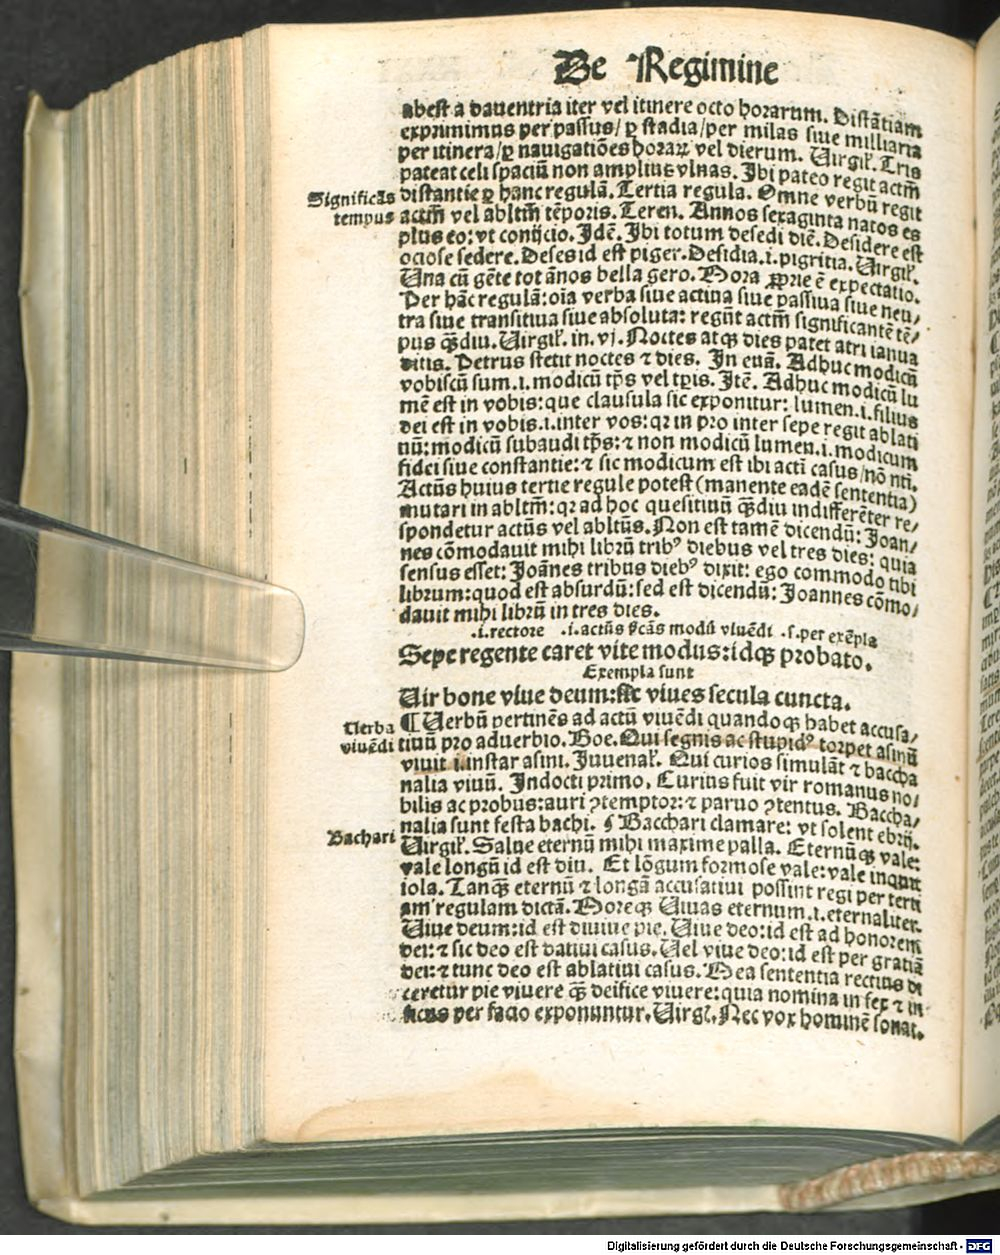 De Regimine
abest a dauentria iter vel itinere octo horarum. Distãtiam
exprimimus per passus/ ꝑ stadia/per milas siue milliaria
per itinera/ꝑ nauigatiões horaꝝ vel dierum. Uirgil̃. Tris
pateat celi spaciũ non amplius vlnas. Ibi pateo regit actm̃
Significãs
tempus
distantie ꝑ hanc regulã. Tertia regula. Omne verbũ regit
actm̃ vel abltm̃ tẽporis. Teren. Annos sexaginta natos es
plus eo: vt conijcio. Idẽ. Ibi totum desedi diẽ. Desidere est
ociose sedere. Deses id est piger. Desidia .i. pigritia. Uirgil̃.
Una cũ gẽte tot ãnos bella gero. Mora ꝓprie ẽ expectatio.
Per hãc regulã: oĩa verba siue actiua siue passiua siue neu/
tra siue transitiua siue absoluta: regũt actm̃ significantẽ tẽ/
pus q̃diu. Uirgil̃. in. vj. Noctes atqꝫ dies patet atri ianua
ditis. Petrus stetit noctes ⁊ dies. In euã. Adhuc modicũ
vobiscũ sum .i. modicũ tp̃s vel tpĩs. Itẽ. Adhuc modicũ lu
mẽ est in vobis: que clausula sic exponitur: lumen .i. filius
dei est in vobis .i. inter vos: qꝛ in pro inter sepe regit ablati
nũ: modicũ subaudi tp̃s: ⁊ non modicũ lumen .i. modicum
fidei siue constantie: ⁊ sic modicum est ibi acti casus/nõ nti.
Actũs huius tertie regule potest (manente eadẽ sententia)
mutari in abltm̃: qꝛ ad hoc quesitiuũ q̃diu indifferẽter re/
spondetur actũs vel abltũs. Non est tamẽ dicendũ: Joan/
nes cõmodauit mihi librũ tribꝰ diebus vel tres dies: quia
sensus esset: Joãnes tribus diebꝰ dixit: ego commodo tibi
librum: quod est absurdũ: sed est dicendũ: Joannes cõmo/
dauit mihi librũ in tres dies.
.i. rectore .i. actũs s̃cãs modũ viuẽdi .s. per exẽpla
Sepe regente caret vite modus: idqꝫ probato.
Exempla sunt
Uir bone viue deum: sic viues secula cuncta.
Uerba
viuẽdi
¶ Uerbũ pertinẽs ad actũ viuẽdi quandoqꝫ habet accusa/
tiuũ pro aduerbio. Boe. Qui segnis ac stupidꝰ torpet asinũ
viuit .i. instar asini. Juuenal̃. Qui curios simulãt ⁊ baccha
nalia viuũ. Indocti primo. Curius fuit vir romanus no/
bilis ac probus: auri ꝯtemptor: ⁊ paruo ꝯtentus. Baccha/
nalia sunt festa bachi. ¶ Bacchari clamare: vt solent ebrij.
Bachari
Uirgil̃. Salue eternũ mihi maxime palla. Eternũqꝫ vale:
vale longũ id est diu. Et lõgum formose vale: vale inquit
iola. Tanq̃ eternũ ⁊ longã accusatiui possint regi per terti
am regulam dictã. Moreqꝫ Uiuas eternum .i. eternaliter.
Uiue deum: id est diuine pie. Uiue deo: id est ad honorem
dei: ⁊ sic deo est datiui casus. Uel viue deo: id est per gratiã
dei: ⁊ tunc deo est ablatiui casus. Mea sententia rectius di
ceretur pie viuere q̃ deifice viuere: quia nomina in fex ⁊ in
ficus per facio exponuntur. Uirgl̃. Nec vox hominẽ sonat.
Digitalisierung gefördert durch die Deutsche Forschungsgemeinschaft - DFG